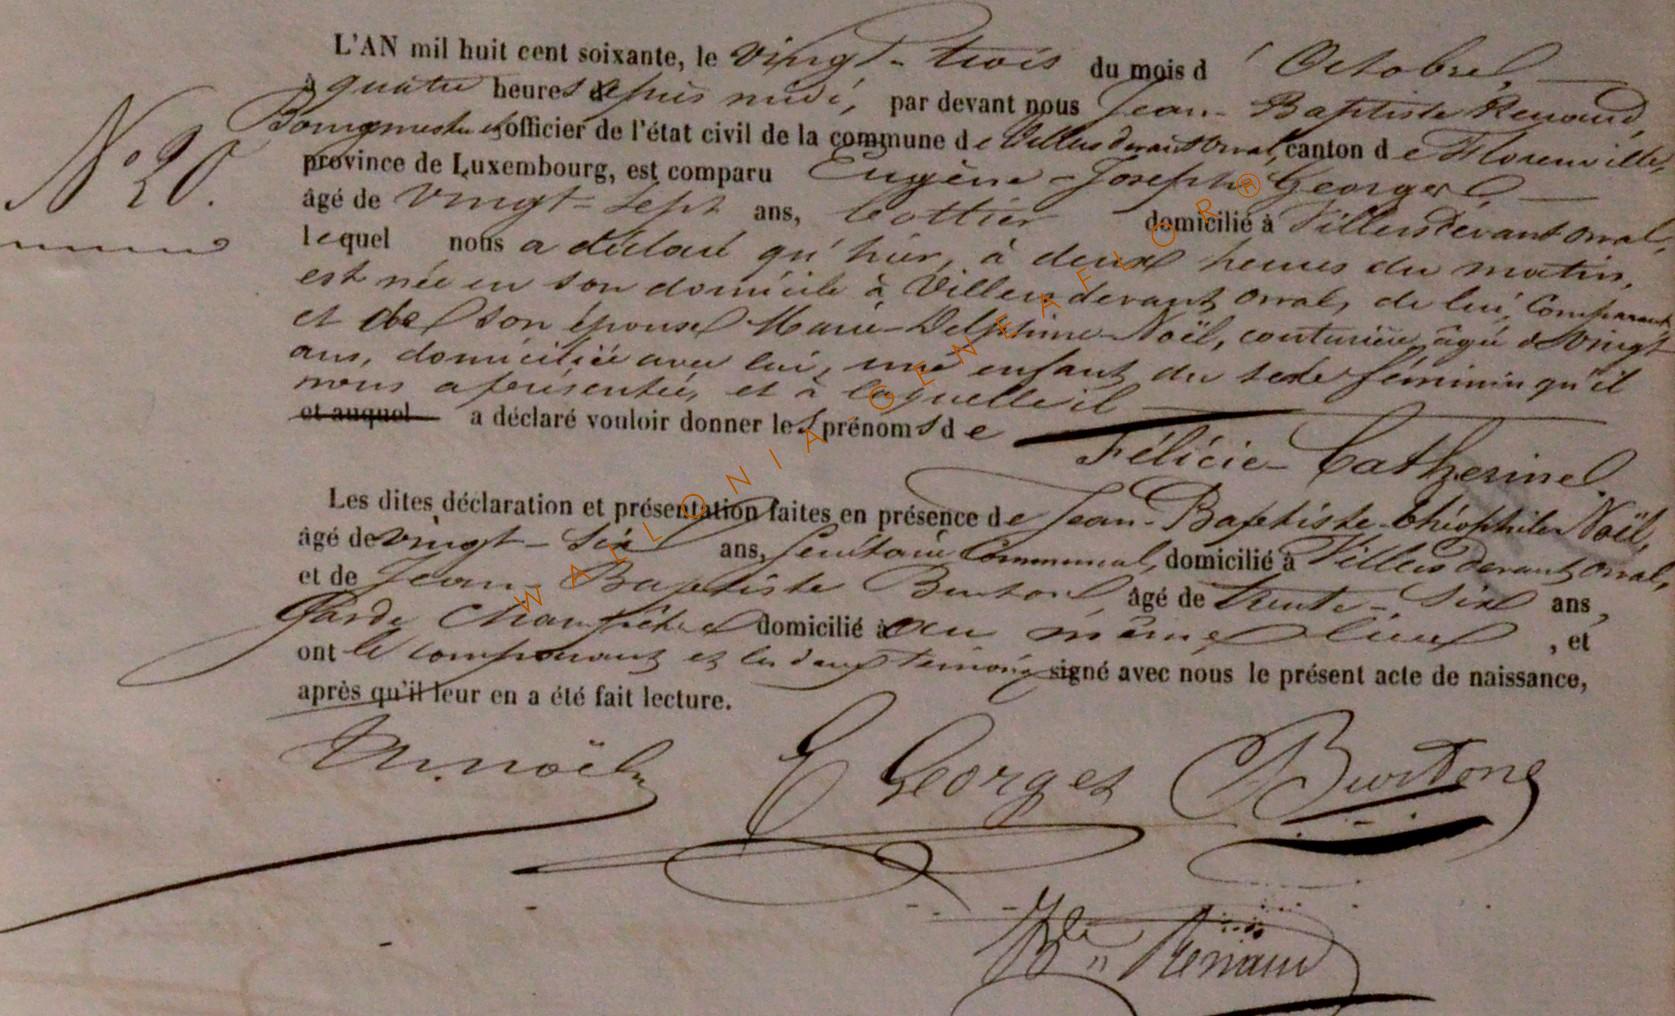 L'AN mil huit cent soixante, le vingt-trois du mois d' Octobre
à quatre heures depuis midi, par devant nous Jean-Baptiste Renaud,
Bourgmestre et officier de l'état civil de la commune de Villers devant Orval, canton de Florenville,
province de Luxembourg, est comparu Eugène-Joseph Georges
âgé de vingt-sept ans, domicilié à Villers devant orval,
lequel nous a déclaré qu'hier, à deux heures du matin,
est née en son domicile à Villers devant orval, de lui, Comparant,
et de son épouse Marie-Delphine Noël, couturière âgée de vingt
ans, domiciliée avec lui, une enfant du sexe féminin qu'il
nous a présentée, et à laquelle il
et auquel a déclaré vouloir donner les prénoms de
Félicie-Catherine.
Les dites déclaration et présentation faites en présence de Jean-Baptiste-théophile Noël,
âgé de vingt-six ans, secrétaire Communal, domicilié à Villers devant orval,
et de Jean-Baptiste Burton, âgé de trente-six ans,
Garde Champêtre domicilié à au même lieu, et
ont le comparant et les deux témoins signé avec nous le présent acte de naissance,
après qu'il leur en a été fait lecture.
N° 20.
noël E Georges Burton
Renaud
WALLONIA-GENEAFLOR®